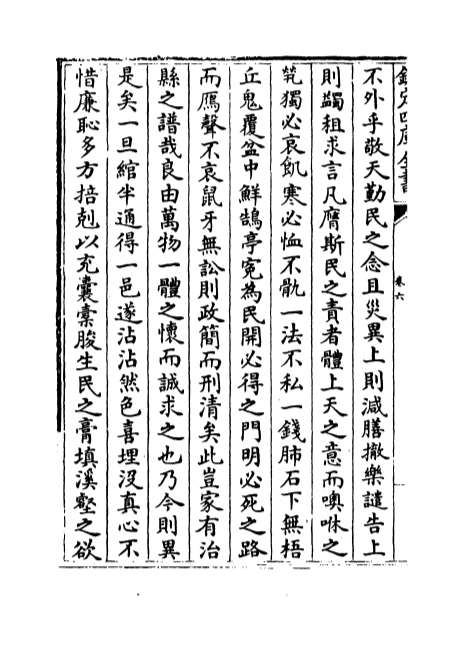 欽定四庫全書
卷六
不外乎敬天勤民之念且災異上則減膳撤樂譴告上
則蠲租求言凡膺斯民之責者體上天之意而噢咻之
茕獨必哀飢寒必恤不骫一法不私一錢肺石下無梧
丘鬼覆盆中鮮鵠亭寃為民開必得之門明必死之路
而鴈聲不哀鼠牙無訟則政簡而刑清矣此豈家有治
縣之譜哉良由萬物一體之懷而誠求之也乃今則異
是矣一旦綰半通得一邑遂沾沾然色喜埋没真心不
惜廉恥多方掊剋以充囊槖朘生民之膏填溪壑之欲